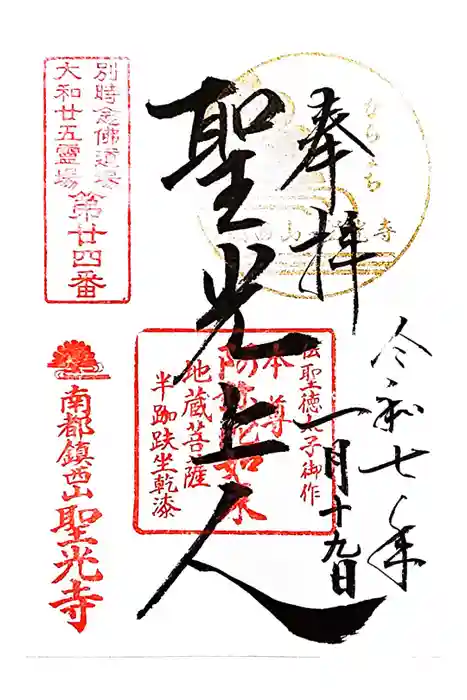 奉拝
令和七年
一月十九日
聖光上人
別時念佛道場
大和廿五靈場
第廿四番
伝聖徳太子御作
本尊
阿弥陀如来
地蔵菩薩
半跏趺坐乾漆
南都鎮西山
聖光寺